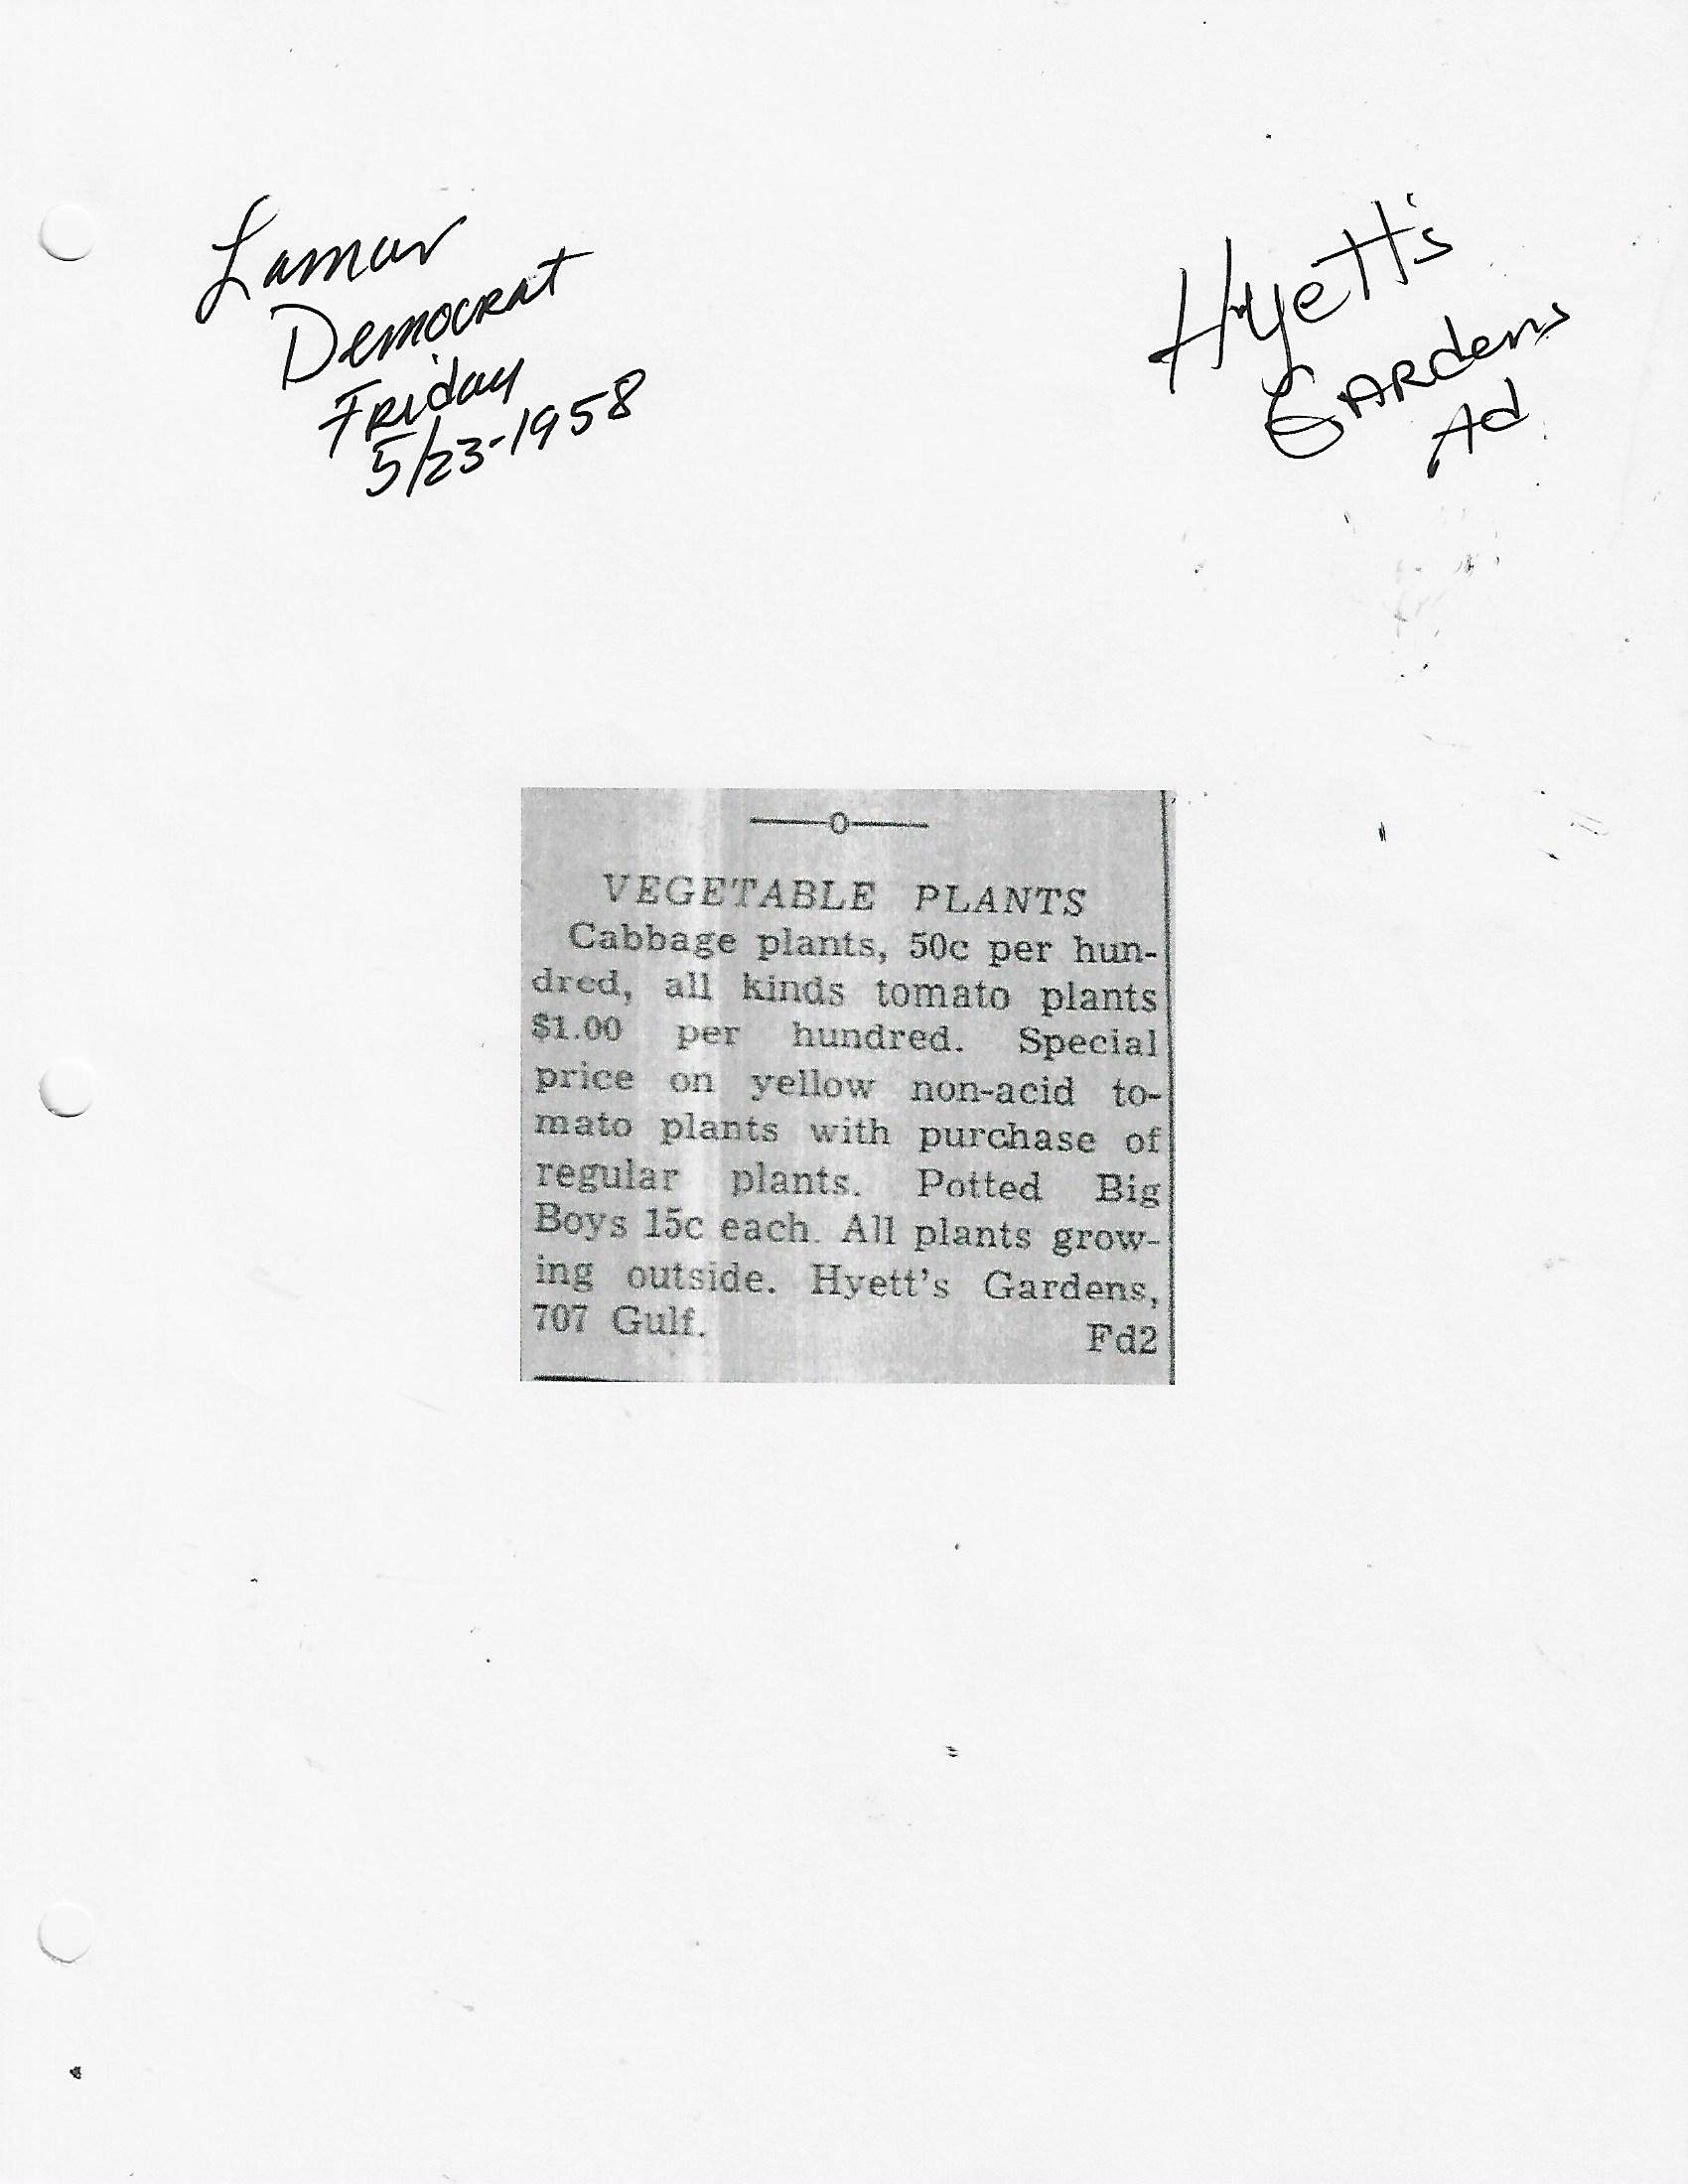 Lamar
Democrat
Friday
5/23-1958
Hyett's
Gardens
Ad
—o—
VEGETABLE PLANTS
Cabbage plants, 50c per hun-
dred, all kinds tomato plants
$1.00 per hundred. Special
price on yellow non-acid to-
mato plants with purchase of
regular plants. Potted Big
Boys 15c each. All plants grow-
ing outside. Hyett's Gardens,
707 Gulf. Fd2